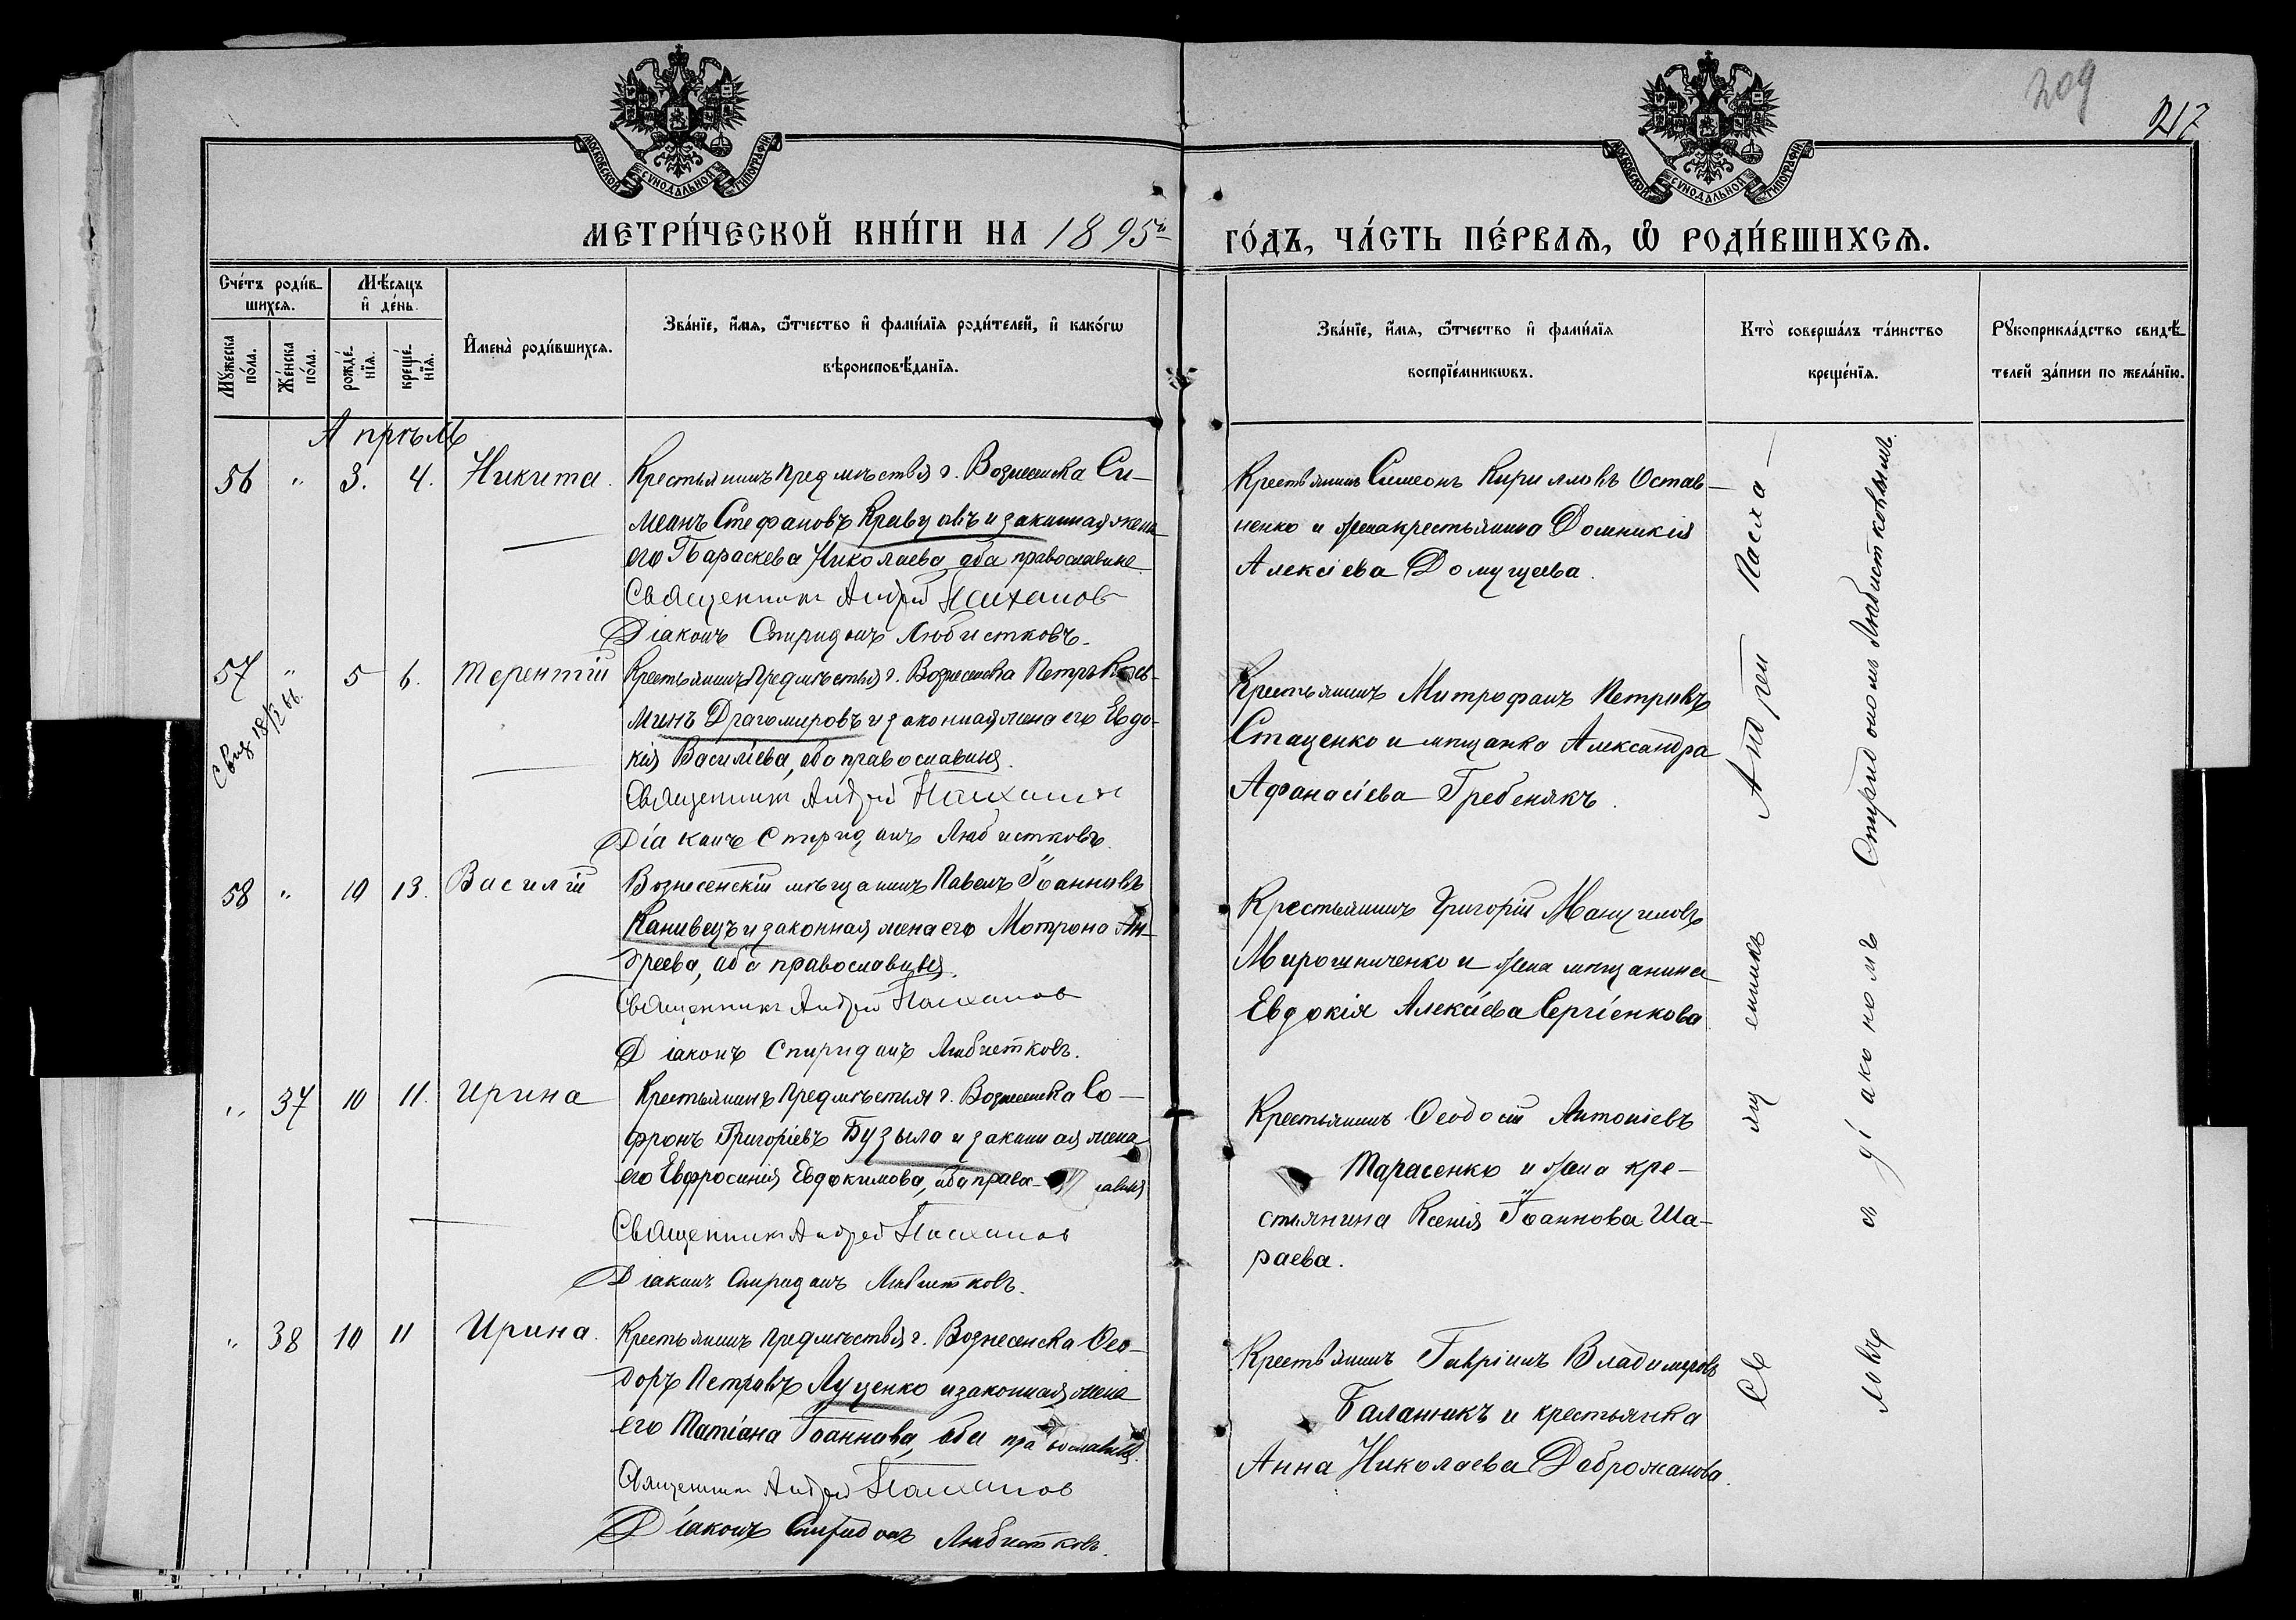 209
217
МОСКОВСКОЙ СУНОДАЛЬНОЙ ТИПОГРАФІИ
МОСКОВСКОЙ СУНОДАЛЬНОЙ ТИПОГРАФІИ
МЕТРИ́ЧЕСКОЙ КНИ́ГИ НА 1895й
ГО́ДЪ, ЧА́СТЬ ПЕ́РВАѦ, Ѽ РОДИ́ВШИХСѦ.
Сче́тъ роди́в-
шихсѧ.
Мꙋ́жеска по́ла.
Же́нска по́ла.
Мѣ́сѧцъ
и҆ де́нь.
рожде́-
нїѧ.
креще́-
нїѧ.
И҆мена̀ роди́вшихсѧ.
Зва́нїе, и҆́мѧ, ѻ҆́тчество и҆ фами́лїѧ роди́телей, и҆ како́гѡ
вѣроисповѣ́данїѧ.
Зва́нїе, и҆́мѧ, ѻ҆́тчество и҆ фами́лїѧ
воспрїе́мникѡвъ.
Кто̀ соверша́лъ та́инство
креще́нїѧ.
Рꙋкоприкла́дство свидѣ́-
телей за́писи по жела́нїю.
Апрѣль
56 " 3. 4. Никита.
Крестьянинъ предмѣстья г. Вознесенска Си-
меонъ Стефановъ Кравецъ и законная жена
его Параскева Николаева, оба православные
Священникъ Андрей
Діаконъ Спиридонъ Любистковъ.
Крестьянинъ Симеонъ Кирилловъ Остав-
ненко и жена крестьянина Домникія
Алексіева Домущеева.
57 " 5 6. Терентій
Крестьянинъ предмѣстья г. Вознесенска Петръ Козь-
минъ Драгомировъ и законная жена его Евдо-
кія Василіева, оба православныя.
Священникъ Андрей
Діаконъ Спиридонъ Любистковъ.
Крестьянинъ Митрофанъ Петровъ
Стаценко и мѣщанка Александра
Афанасіева Гребенякъ.
58 " 10 13. Василій
Вознесенскій мѣщанинъ Павелъ Іоанновъ
Канивецъ и законная жена его Мотрона Ан-
дреева, оба православныя.
Священникъ Андрей
Діаконъ Спиридонъ Любистковъ.
Крестьянинъ Григорій Мануиловъ
Мирошниченко и жена мѣщанина
Евдокія Алексіева Сергіенкова
" 37 10 11. Ирина
Крестьянинъ предмѣстья г. Вознесенска Со-
фронъ Григоріевъ Бузыла и законная жена
его Евфросинія Евдокимова, оба правос-лавныя
Священникъ Андрей
Діаконъ Спиридонъ Любистковъ.
Крестьянинъ Ѳеодосій Антоніевъ
Тарасенко и жена кре-
стьянина Ксенія Іоаннова Ша-
раева.
" 38 10 11 Ирина.
Крестьянинъ предмѣстья г. Вознесенска Ѳео-
доръ Петровъ Луценко и законная жена
его Татіана Іоаннова, оба православныя.
Священникъ Андрей
Діаконъ Спиридонъ Любистковъ.
Крестьянинъ Гавріилъ Владимировъ
Баланюкъ и крестьянка
Анна Николаева Доброжанова.
Священникъ Андрей Пасха-
ловъ съ діакономъ Спиридономъ Любистковымъ.